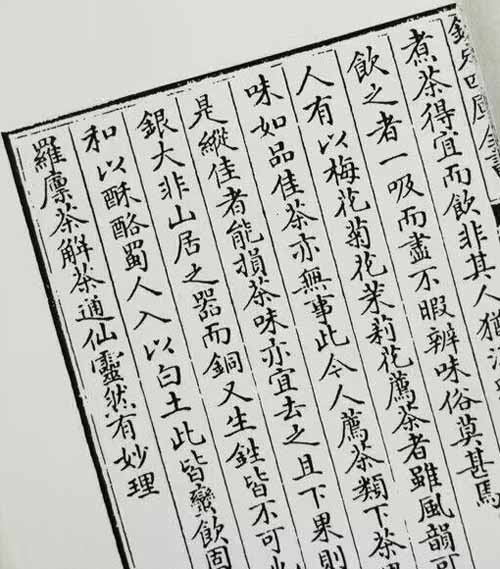 欽定四庫全書
煮茶得宜而飲非其人猶
飲之者一吸而盡不暇辨味俗莫甚焉
人有以梅花菊花茉莉花薦茶者雖風韻可
味如品佳茶亦無事此今人薦茶類下茶
是縱佳者能損茶味亦宜去之且下果則
銀大非山居之器而銅又生鉎皆不可
和以酥酪蜀人入以白土此皆蠻飲固
羅廪茶解茶通仙靈然有妙理